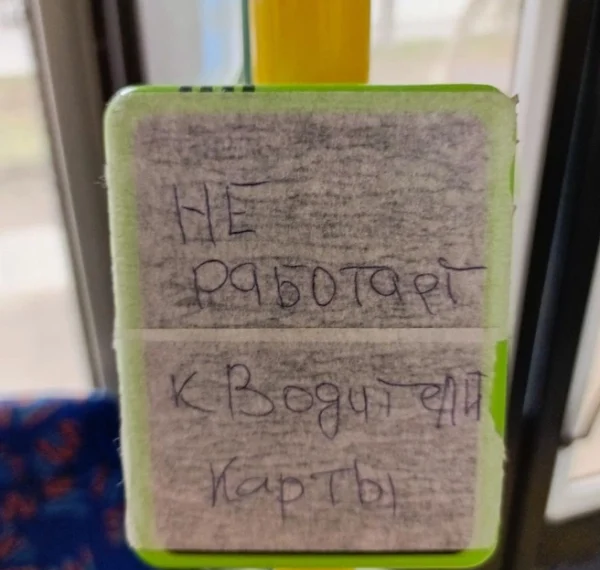 НЕ
работает
К Водители
карты